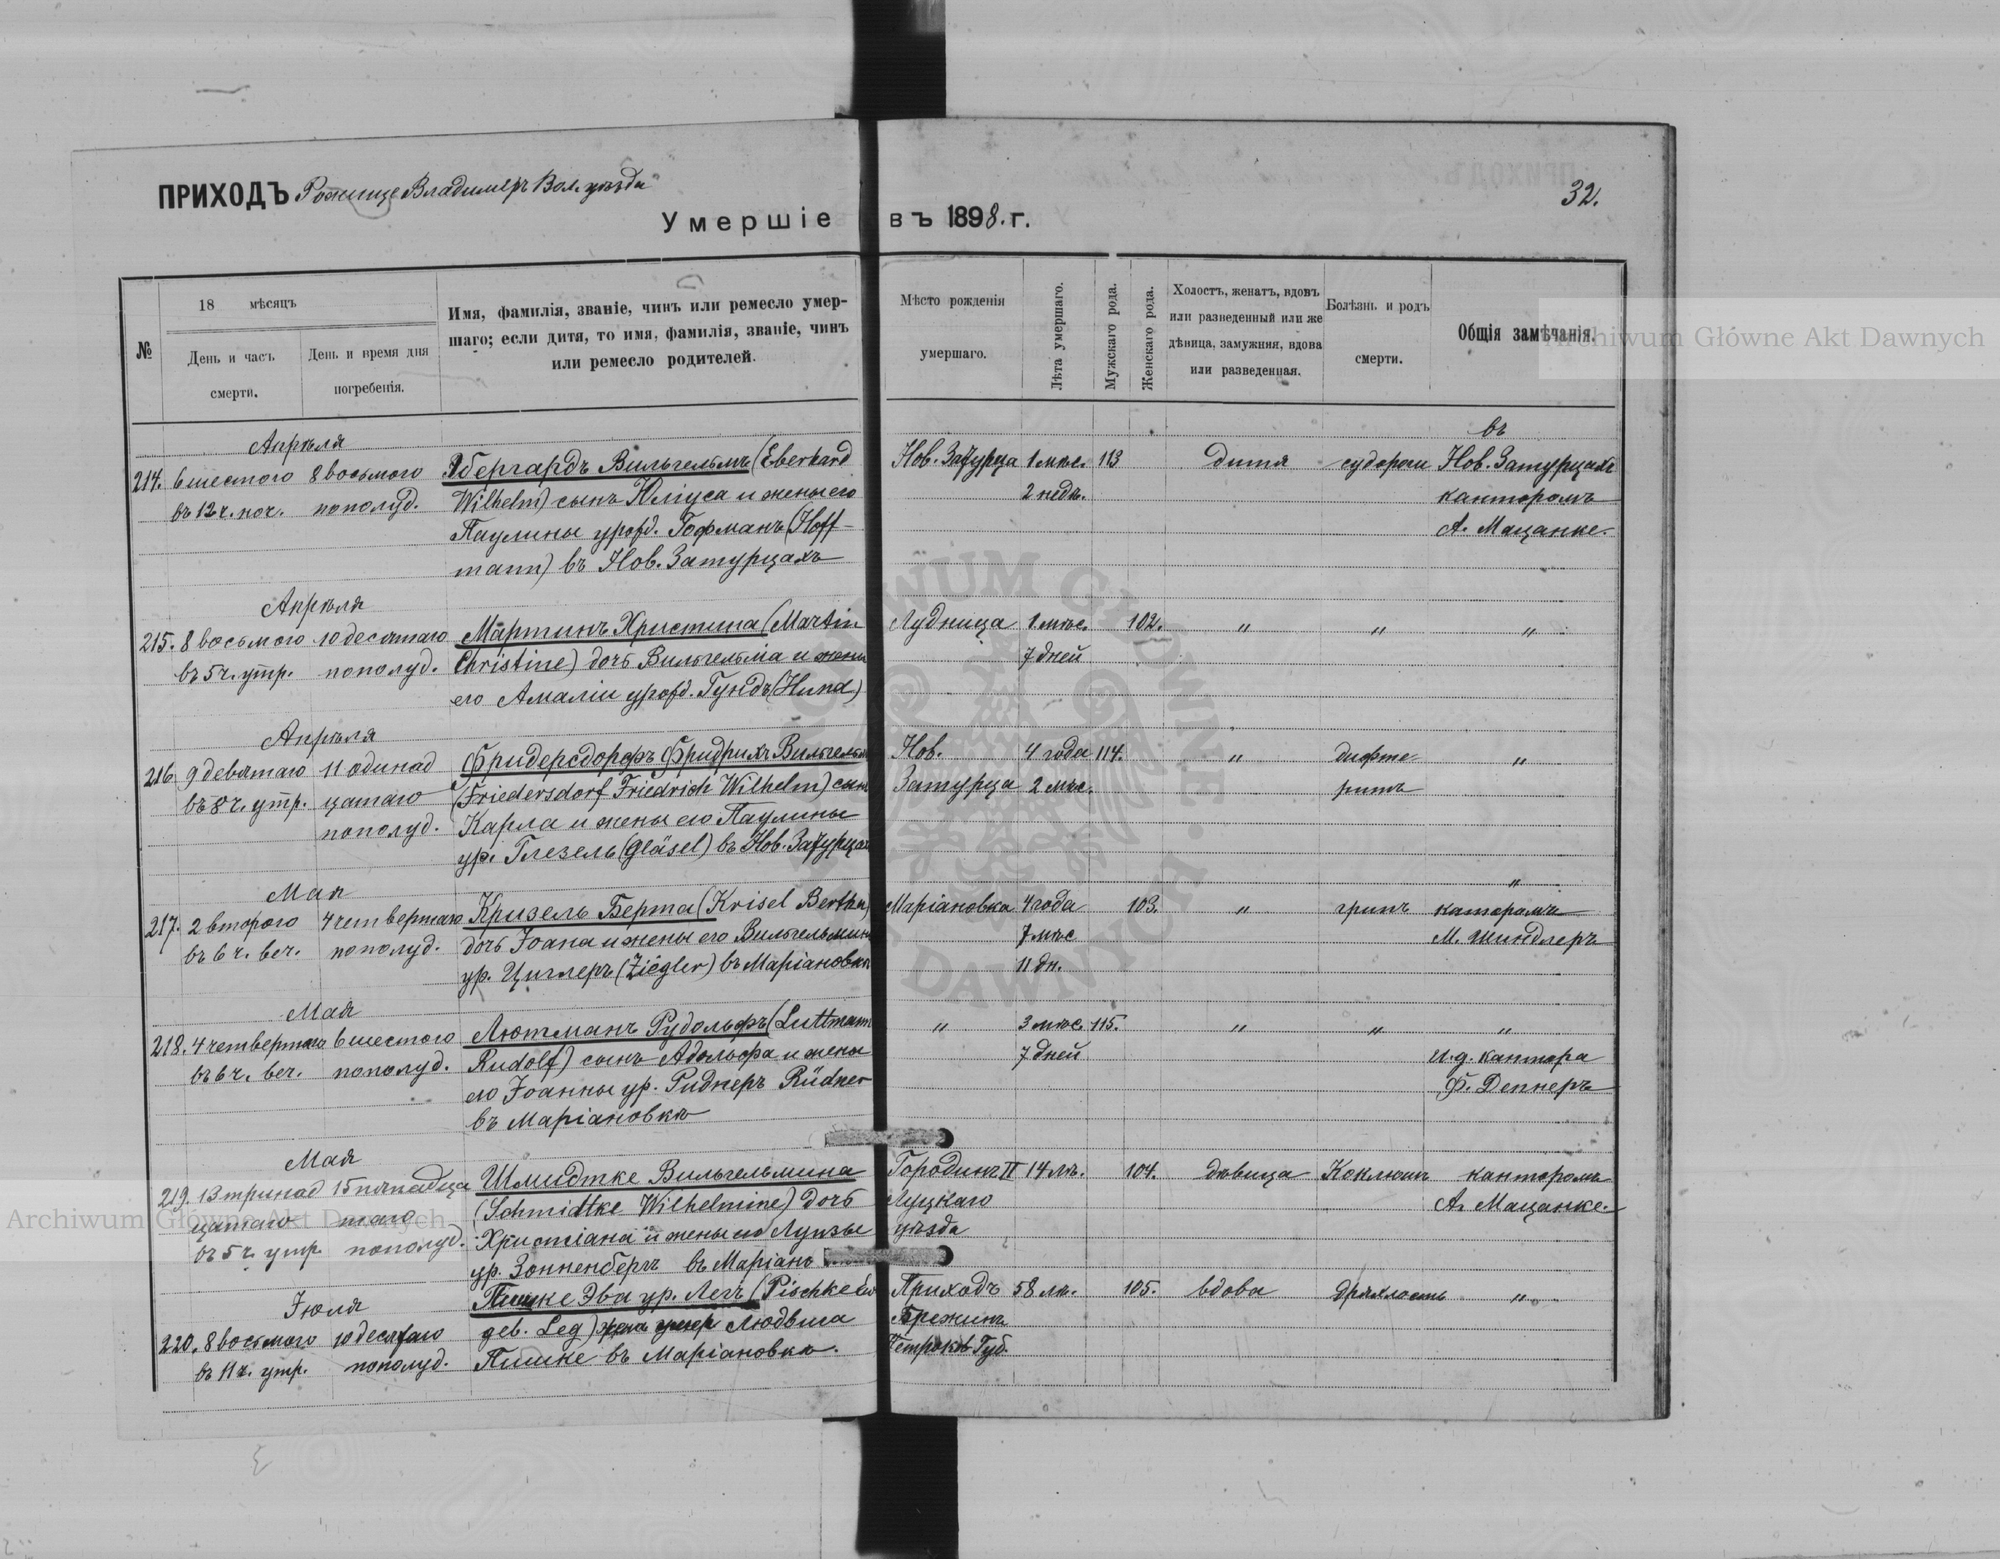 ПРИХОДЪ Рожище Владимеръ Вол. уѣзда
32.
Умершіе въ 1898. г.
№
18 мѣсяцъ
День и часъ смерти.
День и время дня погребенія.
Имя, фамилія, званіе, чинъ или ремесло умер-
шаго; если дитя, то имя, фамилія, званіе, чинъ
или ремесло родителей.
Мѣсто рожденія
умершаго.
Лѣта умершаго.
Мужскаго рода.
Женскаго рода.
Холостъ, женатъ, вдовъ
или разведенный или же
дѣвица, замужняя, вдова
или разведенная.
Болѣзнь и родъ
смерти.
Общія замѣчанія.
Archiwum Główne Akt Dawnych
Апрѣля въ
214. 6 шестого 8 восьмого Эбергардъ Вильгельмъ (Eberhard Нов. Затурца 1 мѣс. 113 дитя судороги Нов. Затурцахъ
въ 12 ч. ноч. пополуд. Wilhelm) сынъ Юліуса и жены его 2 недѣ. канторомъ
Паулины урожд. Гофманъ (Hoff- А. Мацанке.
mann) въ Нов. Затурцахъ
Апрѣля
215. 8 восьмого 10 десятаго Мартинъ Христина (Martin Лудница 1 мѣс. 102. " " "
въ 5 ч. утр. пополуд. Christine) дочь Вильгельма и жены 7 дней
его Амаліи урожд. Гундъ (Hund)
Апрѣля
216. 9 девятаго 11 одинад Фридерсдорфъ Фридрихъ Вильгельмъ Нов. 4 года 114. " дифте "
въ 8 ч. утр. цатаго (Friedersdorf Friedrich Wilhelm) сынъ Затурца 2 мѣс. ритъ
пополуд. Карла и жены его Паулины
ур. Глезель (Gläsel) въ Нов. Затурцахъ
Мая "
217. 2 второго 4 четвертаго Кризель Берта (Krisel Bertha) Маріановка 4 года 103. " грипъ канторомъ
въ 6 ч. веч. пополуд. дочь Іоана и жены его Вильгельмины 7 мѣс М. Шиндлеръ
ур. Циглеръ (Ziegler) въ Маріановкѣ 11 дн.
Мая
218. 4 четвертаго 6 шестого Лютманъ Рудольфъ (Luttmann " 3 мѣс. 115. " " "
въ 6 ч. веч. пополуд. Rudolf) сынъ Адольфа и жены 7 дней И.д. кантора
его Іоанны ур. Риднеръ Rüdner Ф. Депнеръ
въ Маріановкѣ
Мая
219. 13 тринад 15 пятнадца Шмидтке Вильгельмина Городинъ II 14 лѣ. 104. дѣвица Коклюшъ канторомъ
цатаго таго (Schmidtke Wilhelmine) дочь Луцкаго А. Мацанке.
въ 5 ч. утр. пополуд. Христіана и жены его Луизы уѣзда
ур. Зонненбергъ въ Маріано
Іюля Пишке Эва ур. Легъ (Pischke Приходъ 58 лѣ. 105. вдова дряхлость "
220. 8 восьмого 10 десятаго geb. Leg) Людвига Брежинъ
въ 11 ч. утр. пополуд. Пишке въ Маріановкѣ. Петроков. Губ.
Archiwum Główne Akt Dawnych
ARCHIWUM GŁÓWNE AKT DAWNYCH